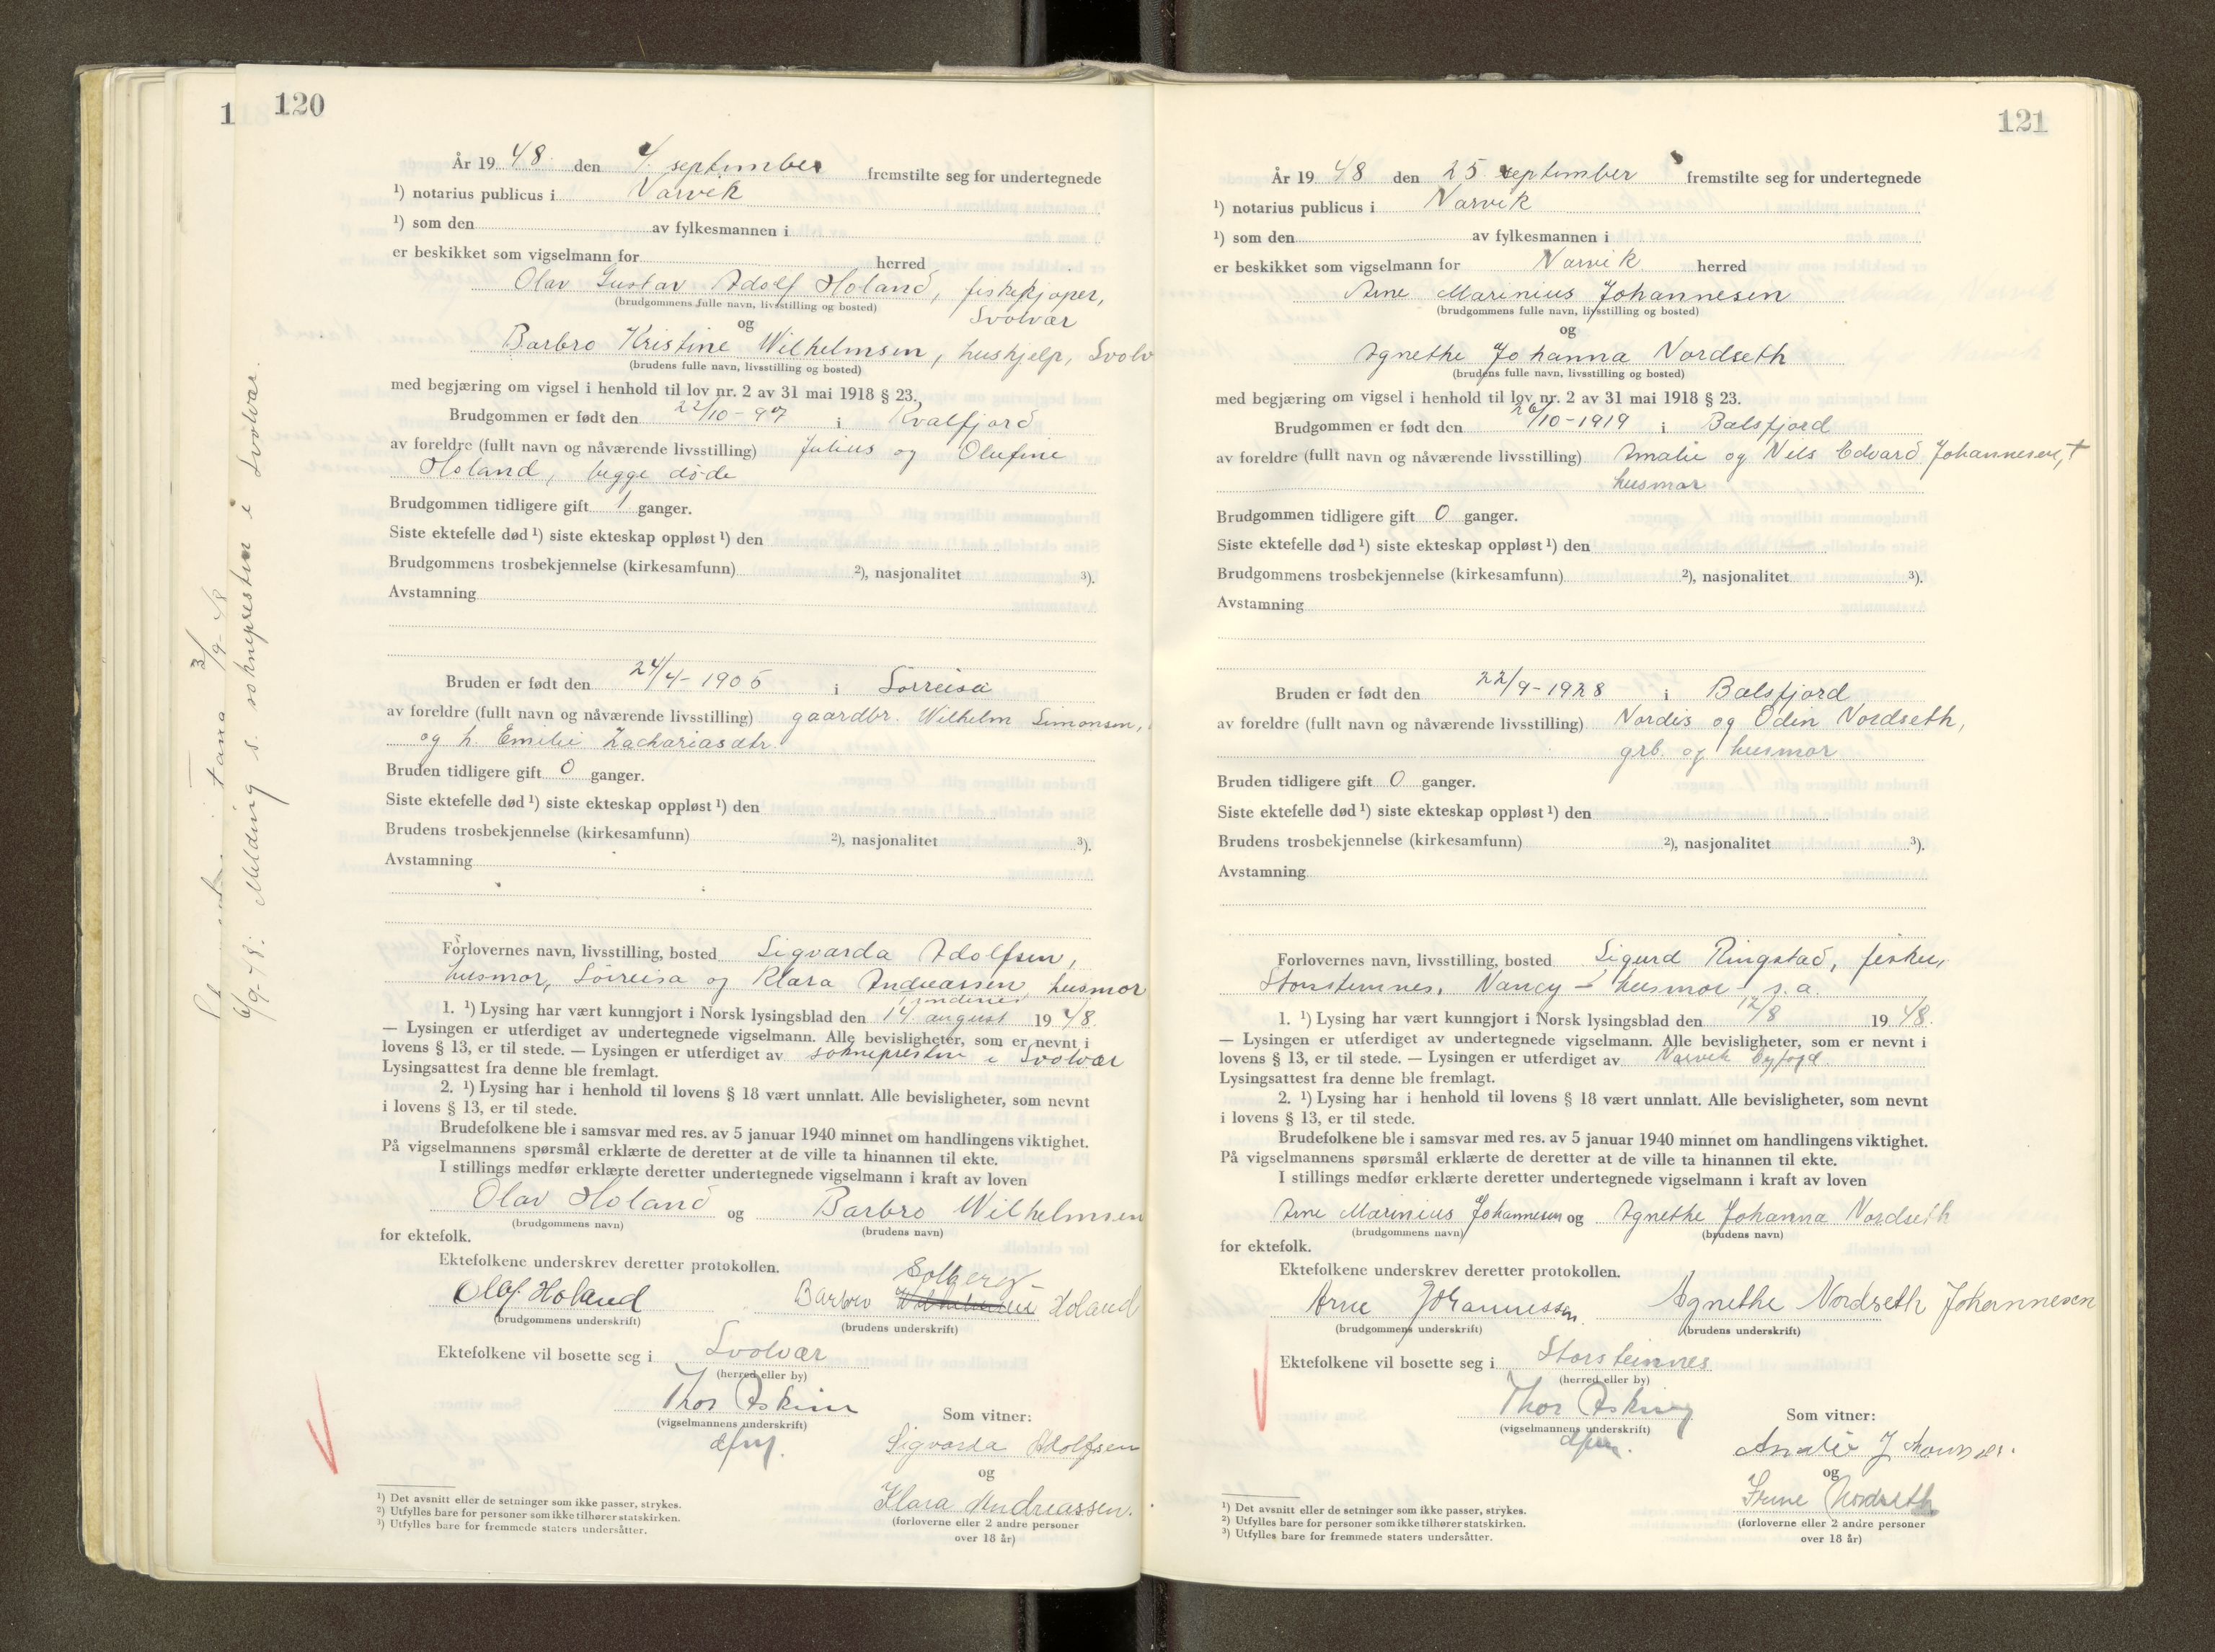 120
År 1948 den 4. september fremstilte seg for undertegnede
¹) notarius publicus i Narvik
¹) som den av fylkesmannen i
er beskikket som vigselmann for herred
Olav Gustav Adolf Holand, fiskekjøper,
(brudgommens fulle navn, livsstilling og bosted)
Svolvær
og
Barbro Kristine Wilhelmsen, huskjelp, Svolv
(brudens fulle navn, livsstilling og bosted)
med begjæring om vigsel i henhold til lov nr. 2 av 31 mai 1918 § 23.
Brudgommen er født den 22/10-97 i Kvalfjord
av foreldre (fullt navn og nåværende livsstilling) Julius og Olufine
Holand, begge døde
Brudgommen tidligere gift 1 ganger.
Siste ektefelle død ¹) siste ekteskap oppløst ¹) den
Brudgommens trosbekjennelse (kirkesamfunn) ²), nasjonalitet ³).
Avstamning
Bruden er født den 24/4-1905 i Sørreisa
av foreldre (fullt navn og nåværende livsstilling) gaardbr. Wilhelm Simonsen,
og h. Emelie Zachariasdtr.
Bruden tidligere gift 0 ganger.
Siste ektefelle død ¹) siste ekteskap oppløst ¹) den
Brudens trosbekjennelse (kirkesamfunn) ²), nasjonalitet ³).
Avstamning
Forlovernes navn, livsstilling, bosted Sigvarda Adolfsen,
husmor, Sørreisa og Klara Andreassen, husmor
1. ¹) Lysing har vært kunngjort i Norsk lysingsblad den 14. august 1948.
— Lysingen er utferdiget av undertegnede vigselmann. Alle bevisligheter, som er nevnt i
lovens § 13, er til stede. — Lysingen er utferdiget av soknepresten i Svolvær
Lysingsattest fra denne ble fremlagt.
2. ¹) Lysing har i henhold til lovens § 18 vært unnlatt. Alle bevisligheter, som nevnt
i lovens § 13, er til stede.
Brudefolkene ble i samsvar med res. av 5 januar 1940 minnet om handlingens viktighet.
På vigselmannens spørsmål erklærte de deretter at de ville ta hinannen til ekte.
I stillings medfør erklærte deretter undertegnede vigselmann i kraft av loven
Olav Holand og Barbro Wilhelmsen
(brudgommens navn) (brudens navn)
for ektefolk.
Ektefolkene underskrev deretter protokollen.
Solberg-
Olaf Holand Barbro Wilhelmsen Holand
(brudgommens underskrift) (brudens underskrift)
Ektefolkene vil bosette seg i Svolvær
(herred eller by)
Thor Askim
(vigselmannens underskrift)
dfm.
Som vitner:
Sigvarda Adolfsen
og
Klara Andreassen.
(forloverne eller 2 andre personer
over 18 år)
¹) Det avsnitt eller de setninger som ikke passer, strykes.
²) Utfylles bare for personer som ikke tilhører statskirken.
³) Utfylles bare for fremmede staters undersåtter.
3/9-48
6/9-48: Melding s. soknepresten i Svolvær.
121
År 1948 den 25 september fremstilte seg for undertegnede
¹) notarius publicus i Narvik
¹) som den av fylkesmannen i
er beskikket som vigselmann for Narvik herred
Arne Marinius Johannesen
(brudgommens fulle navn, livsstilling og bosted)
og
Agnethe Johanna Nordseth
(brudens fulle navn, livsstilling og bosted)
med begjæring om vigsel i henhold til lov nr. 2 av 31 mai 1918 § 23.
Brudgommen er født den 26/10-1919 i Balsfjord
av foreldre (fullt navn og nåværende livsstilling) Amalie og Nils Edvard Johannesen, †
husmor
Brudgommen tidligere gift 0 ganger.
Siste ektefelle død ¹) siste ekteskap oppløst ¹) den
Brudgommens trosbekjennelse (kirkesamfunn) ²), nasjonalitet ³).
Avstamning
Bruden er født den 22/9-1928 i Balsfjord
av foreldre (fullt navn og nåværende livsstilling) Nordis og Odin Nordseth,
grb. og husmor
Bruden tidligere gift 0 ganger.
Siste ektefelle død ¹) siste ekteskap oppløst ¹) den
Brudens trosbekjennelse (kirkesamfunn) ²), nasjonalitet ³).
Avstamning
Forlovernes navn, livsstilling, bosted Sigurd Ringstad, fisker,
Storsteinnes, Nancy — husmor s.a.
1. ¹) Lysing har vært kunngjort i Norsk lysingsblad den 12/8 1948.
— Lysingen er utferdiget av undertegnede vigselmann. Alle bevisligheter, som er nevnt i
lovens § 13, er til stede. — Lysingen er utferdiget av Narvik byfogd.
Lysingsattest fra denne ble fremlagt.
2. ¹) Lysing har i henhold til lovens § 18 vært unnlatt. Alle bevisligheter, som nevnt
i lovens § 13, er til stede.
Brudefolkene ble i samsvar med res. av 5 januar 1940 minnet om handlingens viktighet.
På vigselmannens spørsmål erklærte de deretter at de ville ta hinannen til ekte.
I stillings medfør erklærte deretter undertegnede vigselmann i kraft av loven
Arne Marinius Johannesen og Agnethe Johanna Nordseth
(brudgommens navn) (brudens navn)
for ektefolk.
Ektefolkene underskrev deretter protokollen.
Arne Johannessen. Agnethe Nordseth Johannesen
(brudgommens underskrift) (brudens underskrift)
Ektefolkene vil bosette seg i Storsteinnes
(herred eller by)
Thor Askim
(vigselmannens underskrift)
dfm.
Som vitner:
og
Nordseth
(forloverne eller 2 andre personer
over 18 år)
¹) Det avsnitt eller de setninger som ikke passer, strykes.
²) Utfylles bare for personer som ikke tilhører statskirken.
³) Utfylles bare for fremmede staters undersåtter.